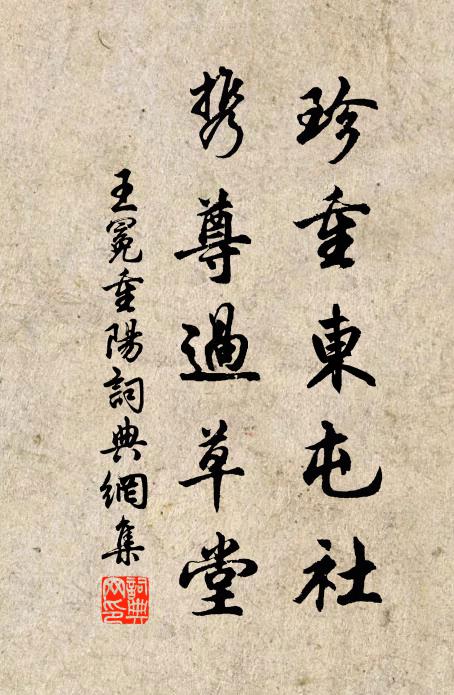 珍重東屯社
携尊過草堂
王冕重陽詞典網集
詞典网印